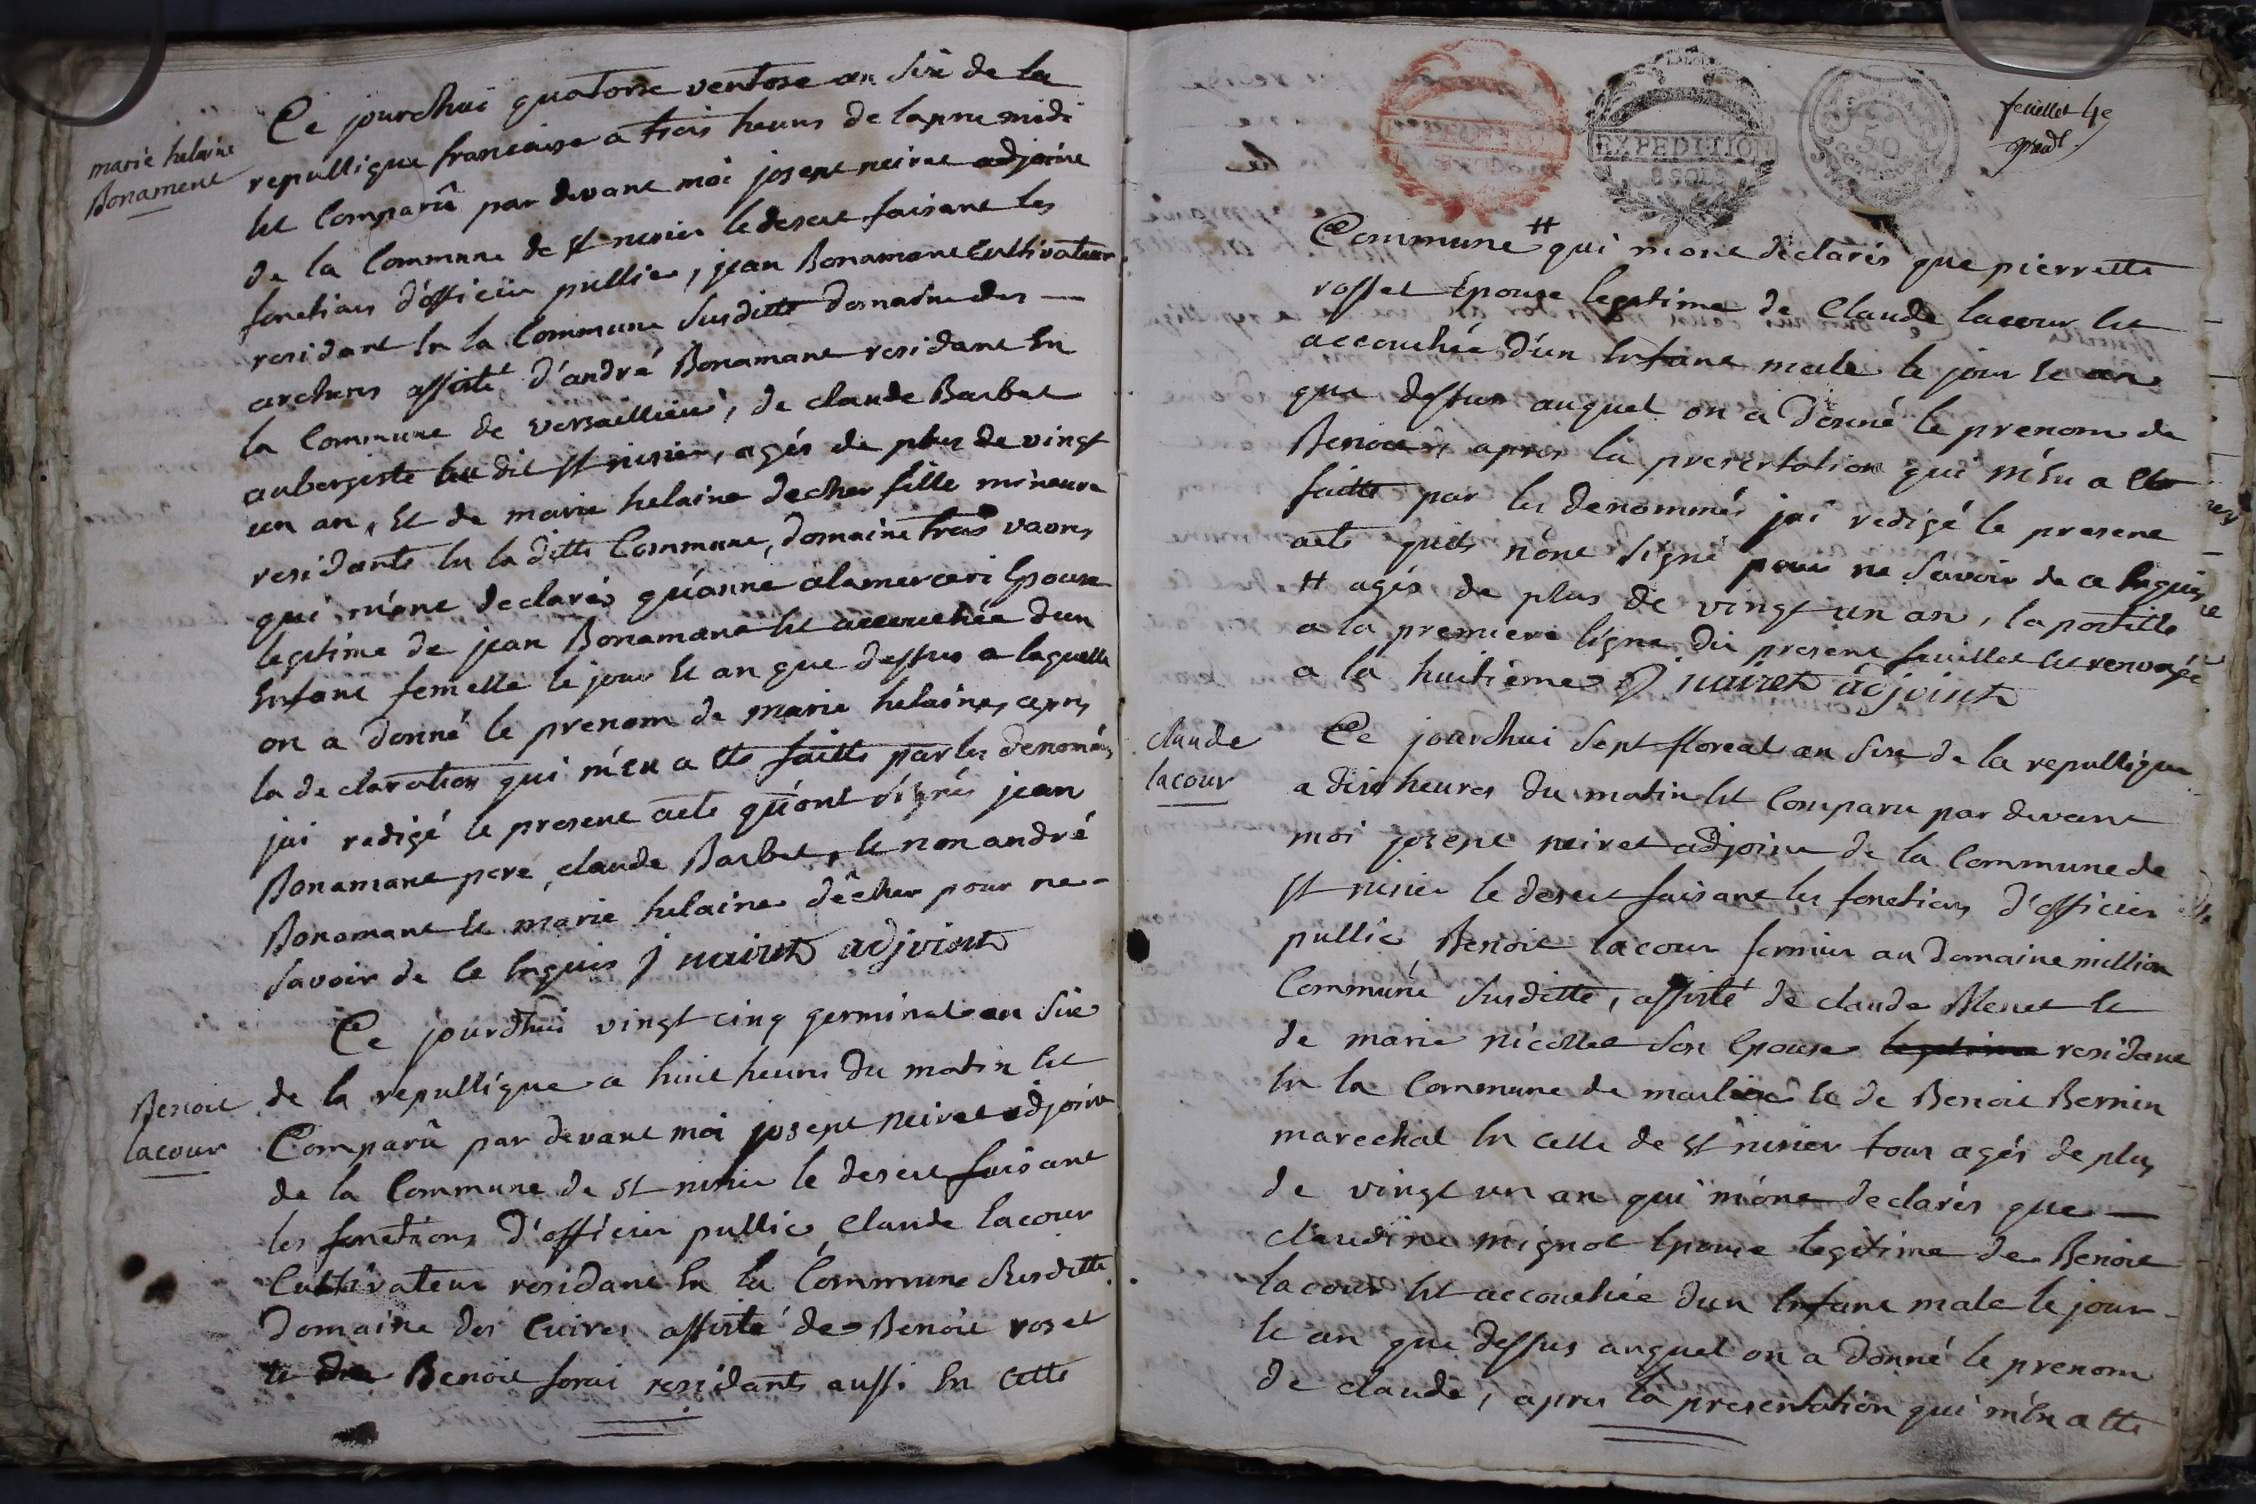 marie helaine
Bonament
Ce jourdhui quatorse ventose an six de la
republique francaise a trois heurs de lapre midi
Est Comparû par devant moi josept neiret adjoint
de la Commune de st nisier le desert faisant les
fonctions d'officier pullic, jean Bonamant Cultivateur
residant En la Commune Susditte domaine des —
archers assisté d'andré Bonamant residant En
la Commune de versaillieu, de claude Barbet
aubergiste au dit st nisier, agés de plus de vingt
un an, Et de marie helaine decher fille mineure
residante En la ditte Commune, domaine trois vaons
qui m'ont declarés qu'anne alamerceri Epouse
legitime de jean Bonamant Est accouchée dun
Enfant femelle le jour Et an que dessus a laquelle
on a donné le prenom de marie helaine, apres
la declaration qui m'En a ete faitte par les denomés
jai redigé le present acte qu'ont signés jean
Bonamant pere, claude Barbet, Et non andré
Bonamant Et marie helaine dêcher pour ne
savoir de ce Enquis j neiret adjoint
Benoit
lacour
Ce jourdhui vingt cinq germinal an Six
de la republique a huit heurs du matin Est
Comparû par devant moi josept neiret adjoint
de la Commune de st nisier le desert faisant
les fonctions d'officier pullic, Claude lacour
Cultivateur residant En la Commune Susditte
domaine des Cuires assisté de Benoit roset
Et Benoit forai residants aussi En cette
feuillet 4e
EXPEDITION
8 SOLS
50
Commune # qui mont declarés que pierrette
rosset Epouse legitime de Claude lacour Est
accouchée d'un Enfant male le jour Et an
que dessus auquel on a donné le prenom de
Benoit, apres la presentation qui m'En a Ete
faitte par les denommés jai redigé le present
acte quils n'ont signé pour ne savoir de ce Enquis
# agés de plus de vingt un an, la postille
a la premiere ligne du present feuillet Est renvoyée
a la huitieme j neiret adjoint
claude
lacour
Ce jourdhui sept floreal an six de la republique
a dix heures du matin Est Comparu par devant
moi josept neiret adjoint de la Commune de
st nisier le desert faisant les fonctions d'officier
pullic, Benoit lacour fermier au domaine million
Commune Susditte, assisté de claude Blenet Et
de marie nicollet son Epouse legitime residant
En la Commune de marlieu Et de Benoit Bernin
marechal En celle de st nisier tous agés de plus
de vingt un an qui m'ont declarés que —
claudine mignot Epouse legitime de Benoit
lacour Est accouchée dun Enfant male le jour
Et an que dessus auquel on a donné le prenom
de claude, apres la presentation qui m'En a Ete